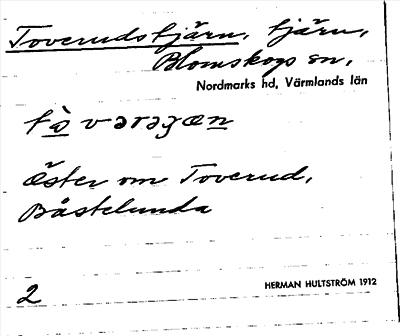 Toverudstjärn, tjärn,
Blomskogs sn,
Nordmarks hd, Värmlands län
Öster om Toverud,
Båstelunda
HERMAN HULTSTRÖM 1912
2